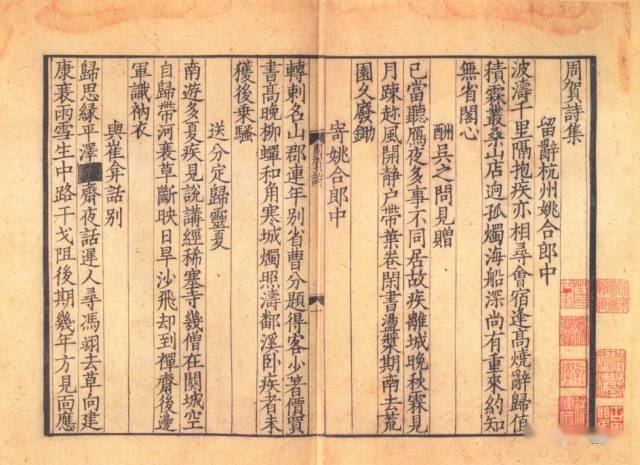 周賀詩集
留辭杭州姚合郎中
波濤千里隔抱疾亦相尋會宿逢高燒辭歸值
積霖叢桑山店迥孤燭海船深尚有重來約知
無省閣心
酬吳之問見贈
已當聽鴈夜多事不同居故疾離城晚秋霖見
月疎趁風開靜户帶葉卷閑書盪槳期南去荒
園久廢鋤
寄姚合郎中
轉刺名山郡連年別省曹分題得客少著價買
書高晚柳蟬和角寒城燭照濤鄱溪卧疾者未
獲後乗騷
送分定歸靈夏
南遊多夏疾見說講經稀塞寺幾僧在關城空
自歸帶河衰草斷映日旱沙飛却到禪齋後邊
軍識衲衣
與崔弁話別
歸思緣平澤齋夜話遲人尋馮翊去草向建
康衰雨雪生中路干戈阻後期幾年方見面應